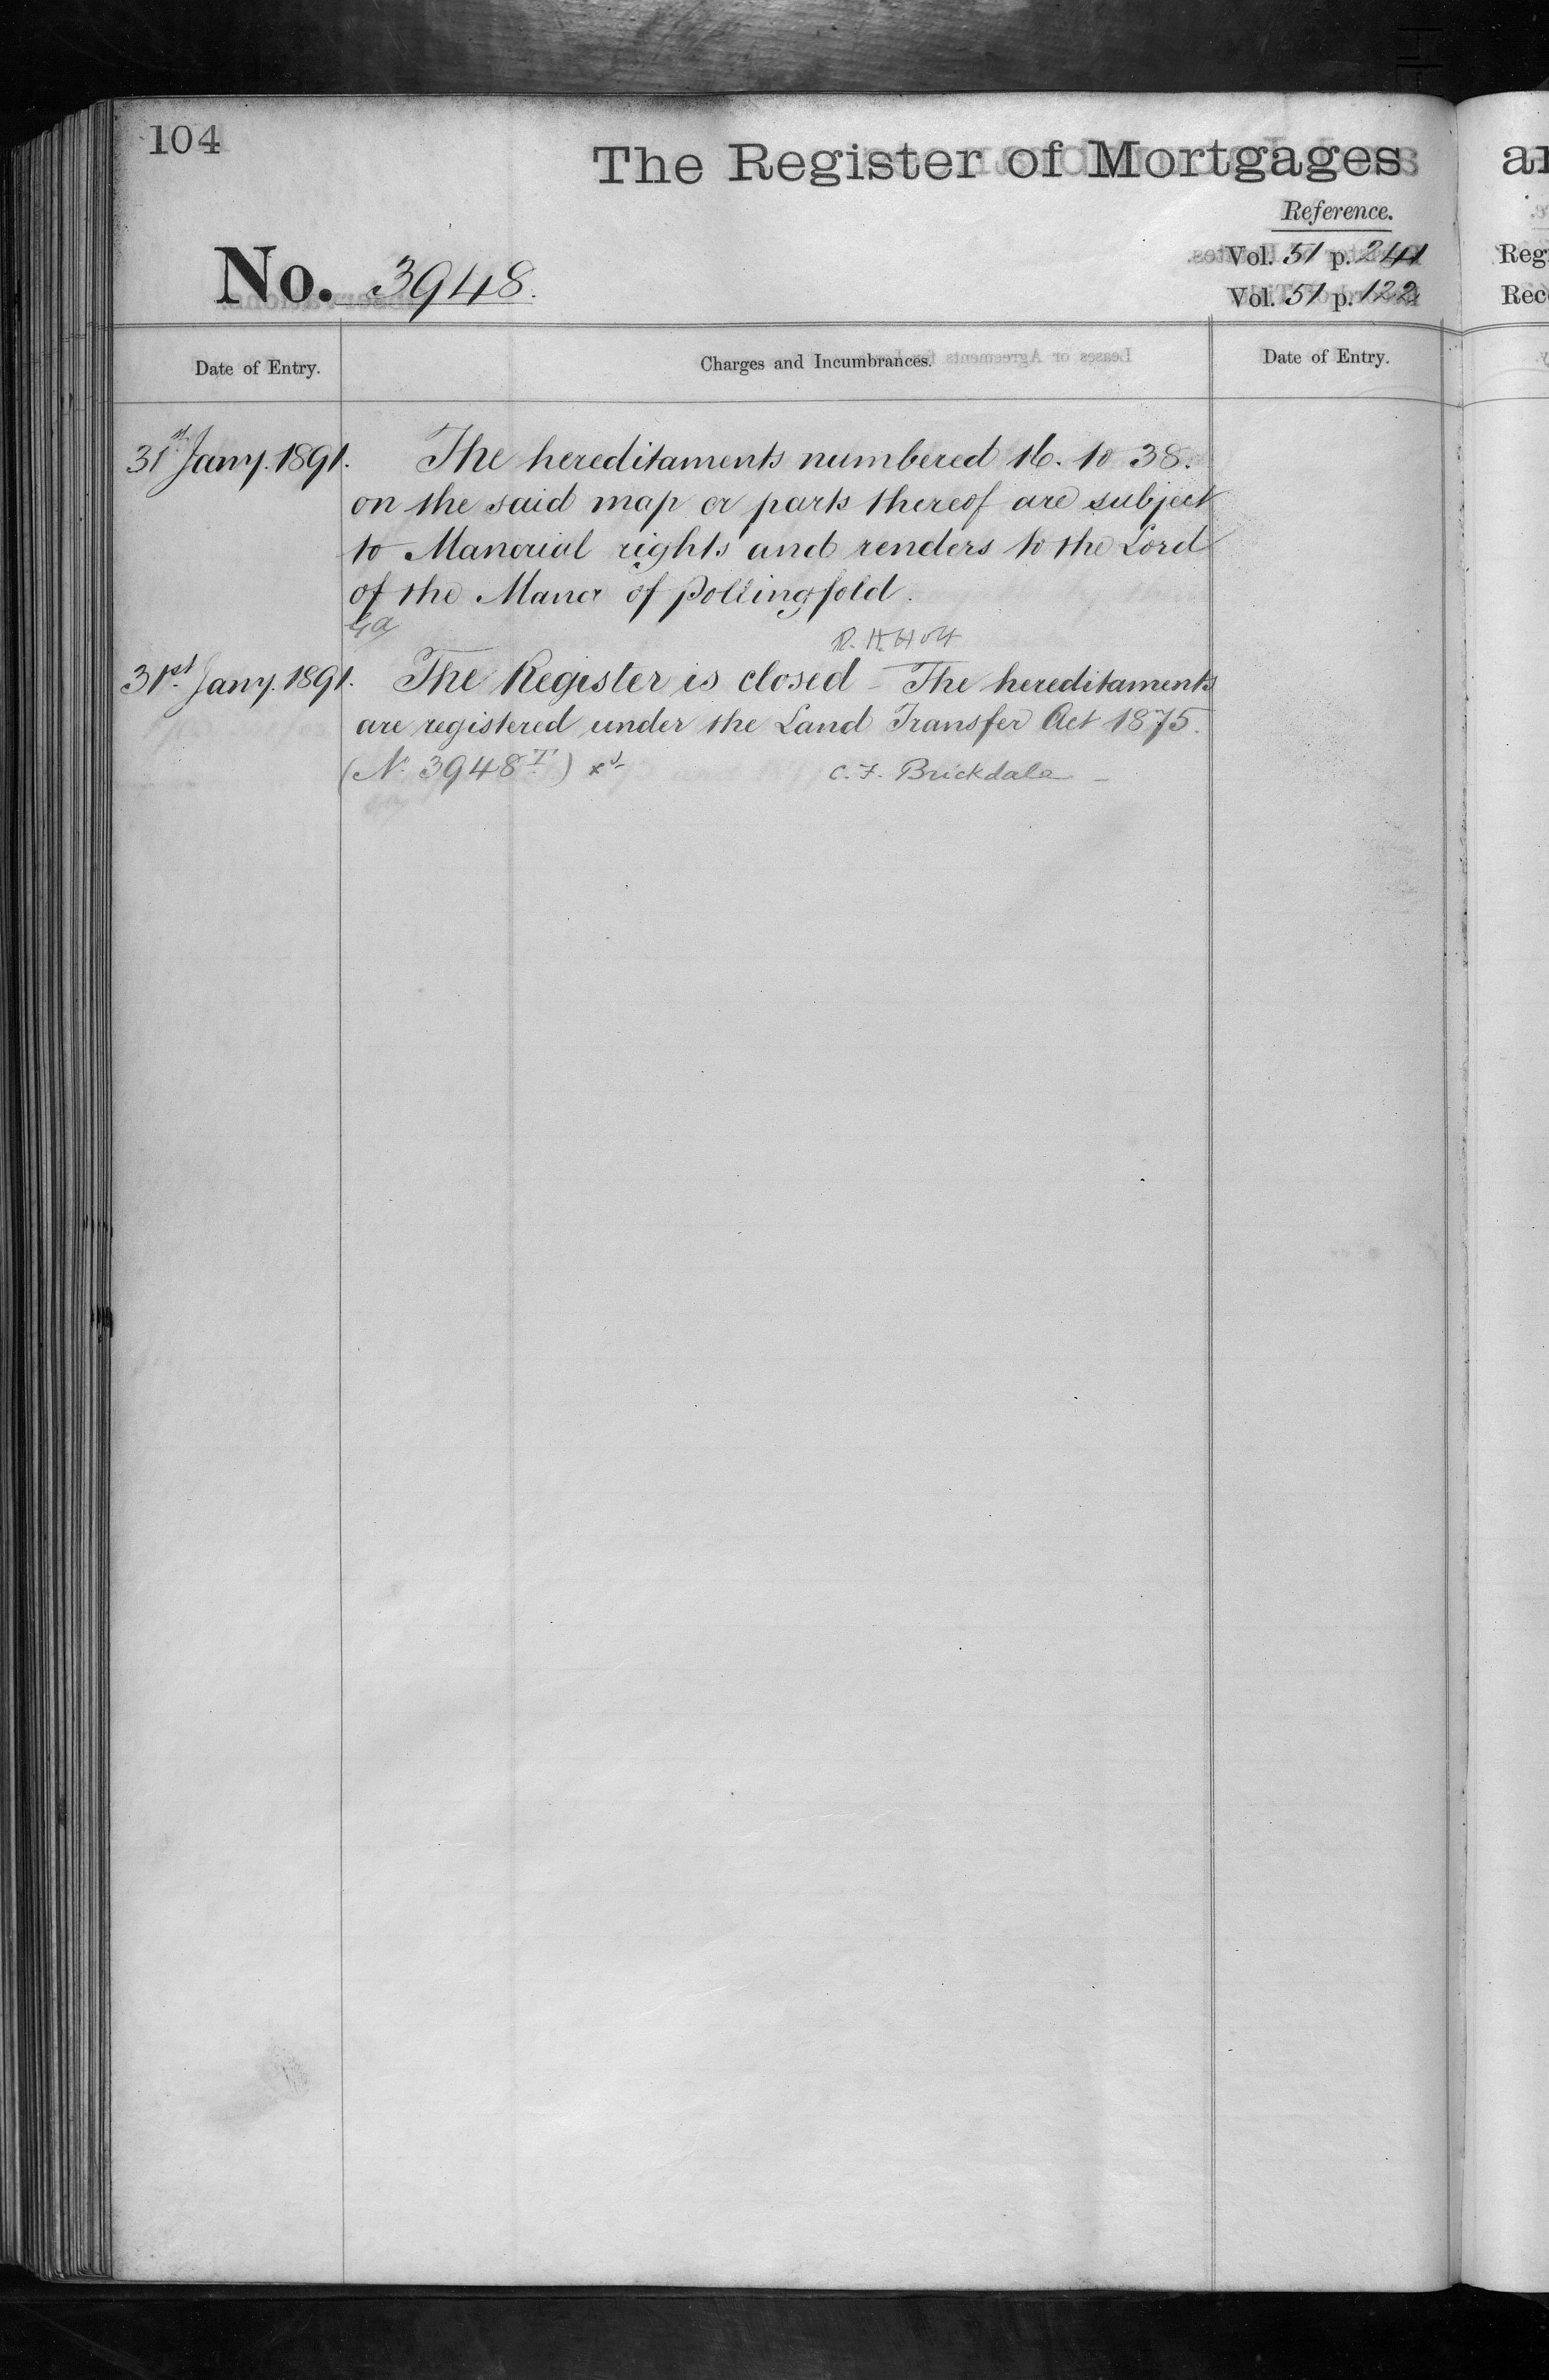 104
The Register of Mortgages
Reference.
No. 3948.
Vol. 51 p. 241
Vol. 51 p. 122
Date of Entry.
Charges and Incumbrances.
Date of Entry.
31st Jany. 1891. The hereditaments numbered 16. to 38.
on the said map or parts thereof are subject
to Manorial rights and renders to the Lord
of the Manor of Pollingfold.
R. H. Holt
31st Jany. 1891. The Register is closed - The hereditaments
are registered under the Land Transfer Act 1875.
(No. 3948 T)
C. F. Brickdale -